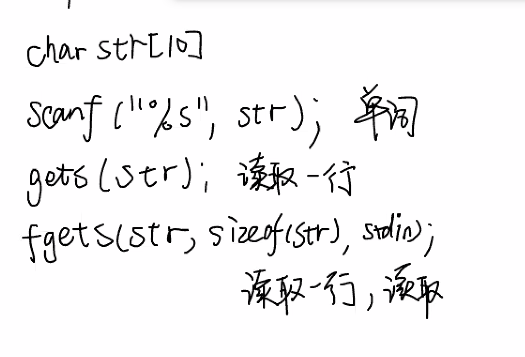 char str[10]
scanf("%s", str); 单词
gets(str); 读取一行
fgets(str, sizeof(str), stdin);
读取一行，读取